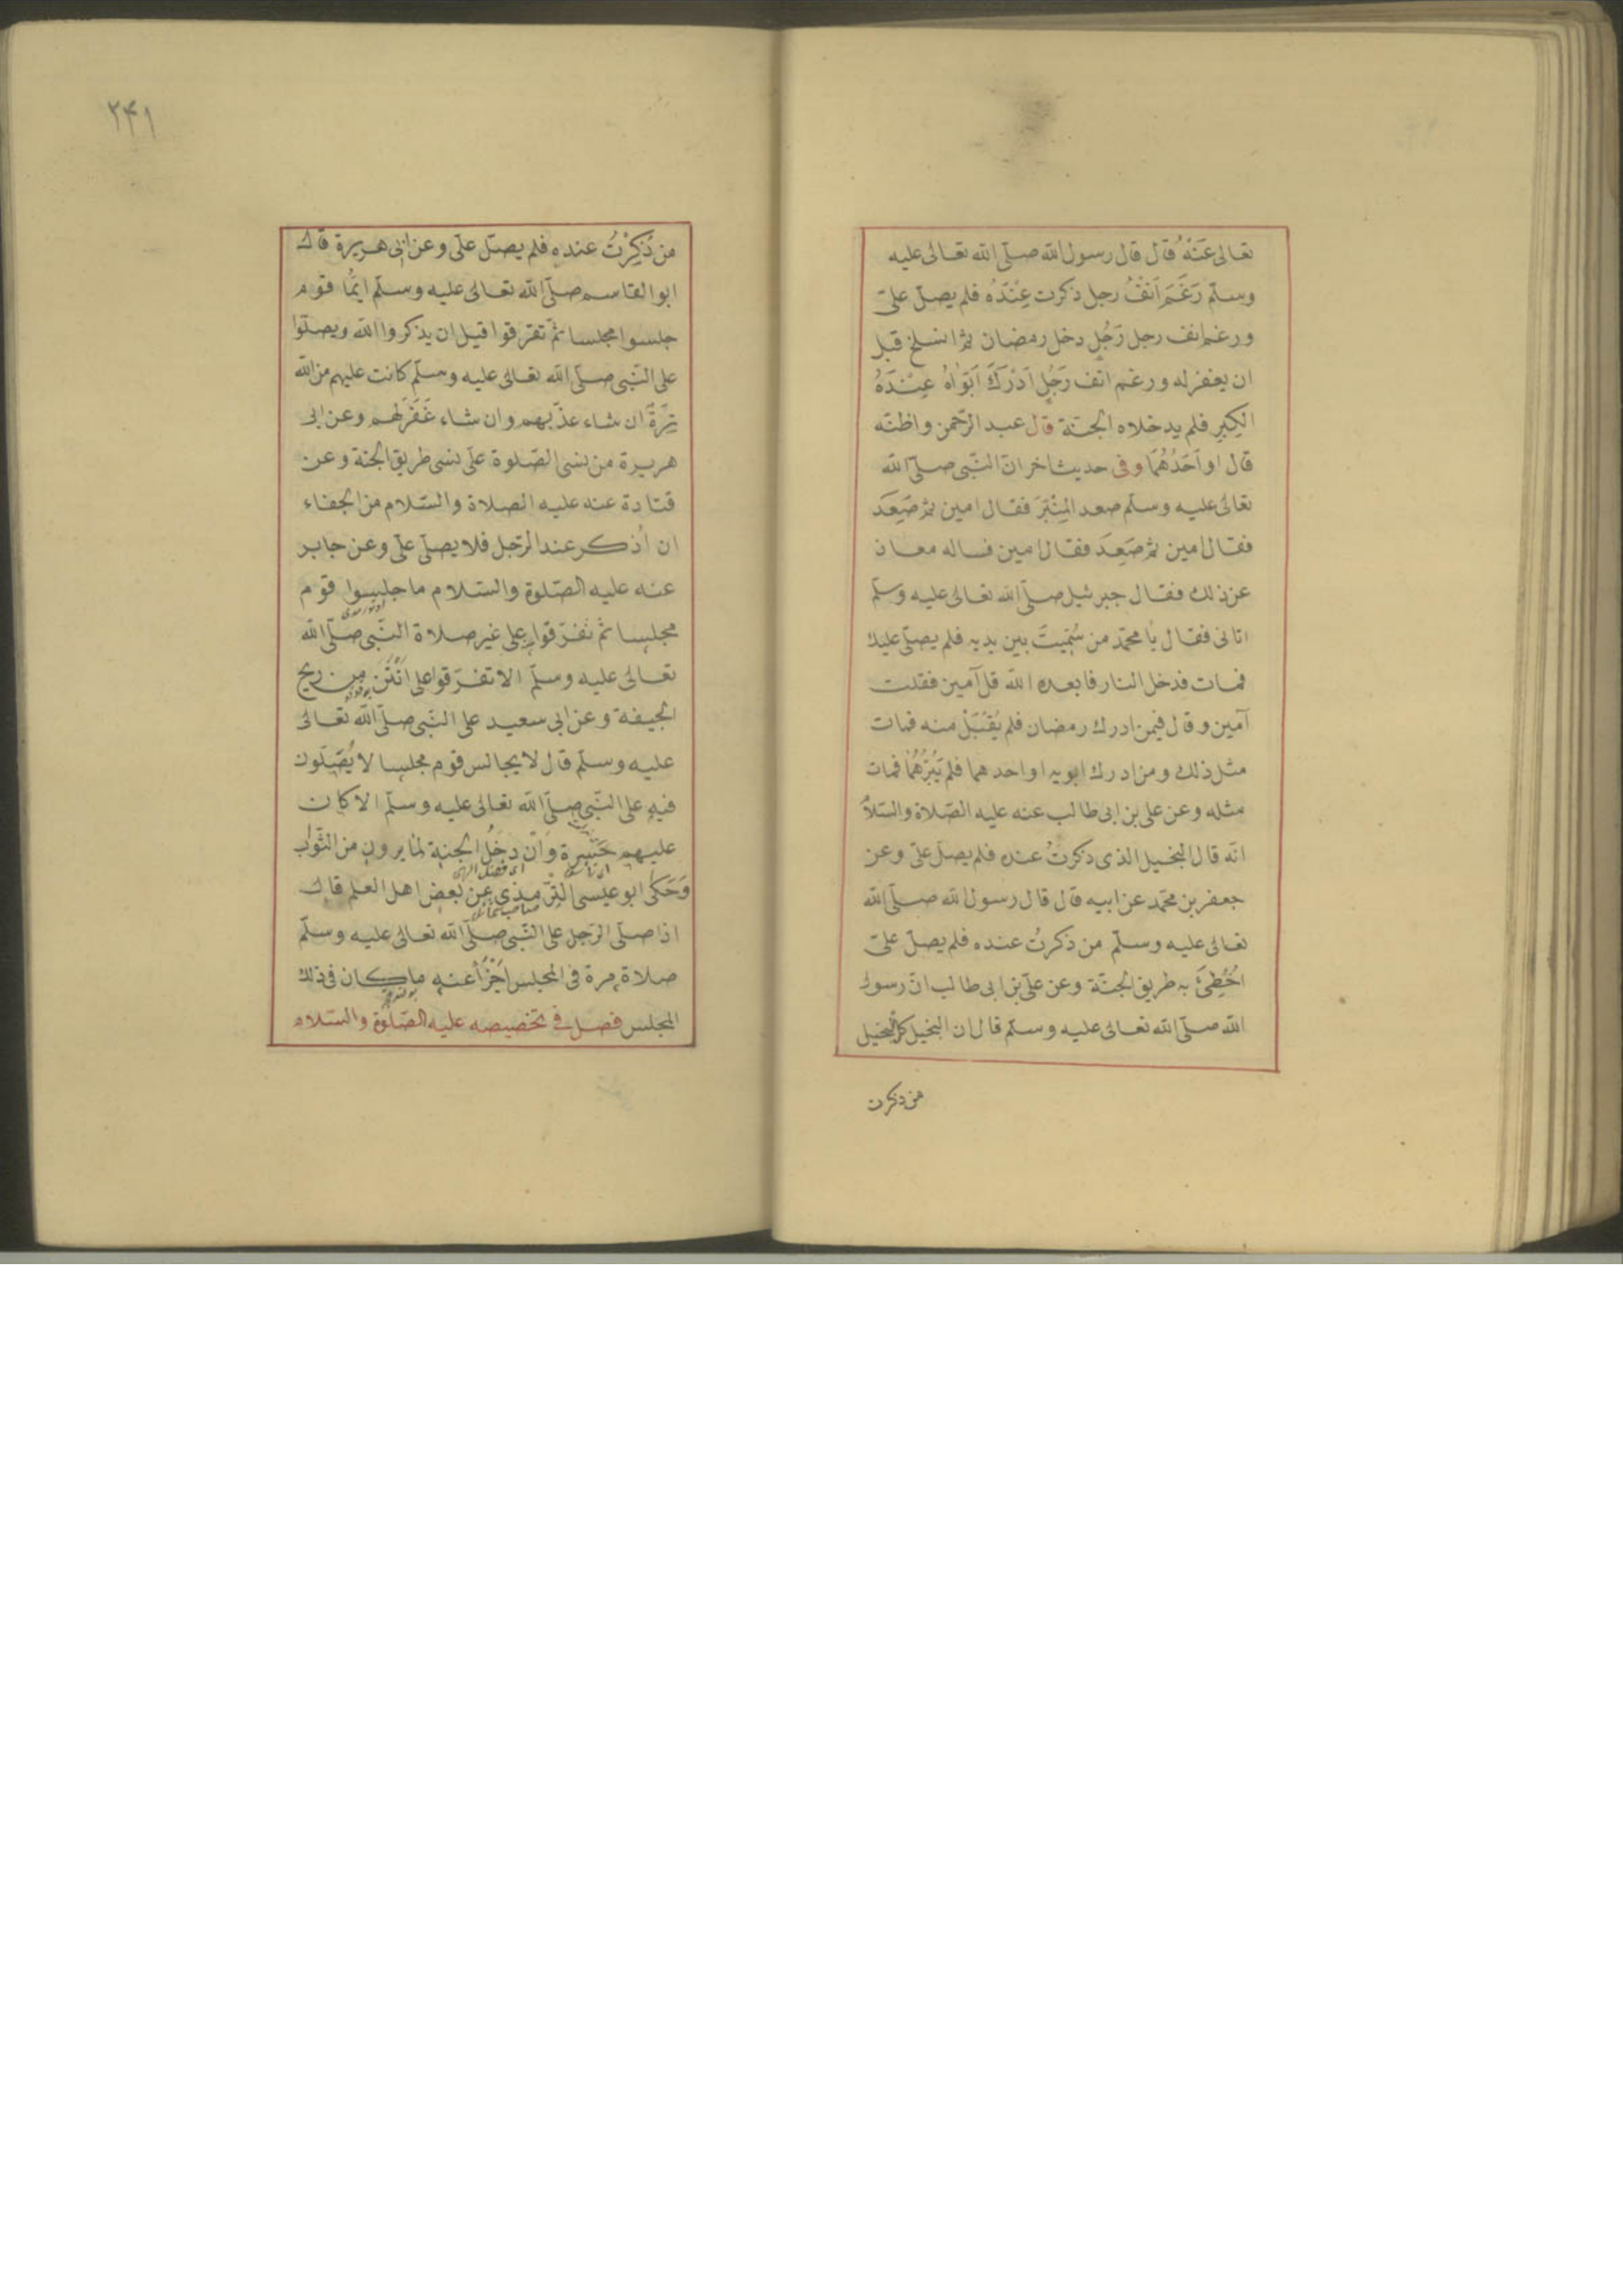 تعالى عَنْهُ قال قال رسول الله صلّى الله تعالى عليه
وسلّم رَغَمَ اَنْفُ رجل ذكرت عِنْدَهُ فلم يصلّ علىّ
ورغم انف رجل رَجُلٍ دخل رمضان ثم انسلخ قبل
ان يغفر له ورغم انف رَجُلٍ اَدْرَكَ اَبَوَاهُ عِنْدَهُ
الكِبَرِ فلم يدخلاه الجنّة قال عبد الرّحمن واظنّه
قال او اَحَدُهُمَا وفى حديث اخر انّ النّبى صلّى الله
تعالى عليه وسلّم صعد المِنْبَرَ فقال امين ثم صَعِدَ
فقال امين ثم صَعِدَ فقال امين فساله معاذ
عن ذلك فقال جبرئيل صلّى الله تعالى عليه وسلّم
اتانى فقال يا محمّد من سُمِّيتَ بين يديه فلم يصلّ عليك
فمات فدخل النار فابعده الله قل آمين فقلت
آمين وقال فيمن ادرك رمضان فلم يُقْبَلْ منه فمات
مثل ذلك ومن ادرك ابويه او احدهما فلم يَبَرَّهُمَا فمات
مثله وعن على بن ابى طالب عنه عليه الصّلاة والسّلام
انّه قال البخيل الذى ذكرتُ عنده فلم يصلّ علىّ وعن
جعفر بن محمّد عن ابيه قال قال رسول الله صلّى الله
تعالى عليه وسلّم من ذكرتُ عنده فلم يصلّ علىّ
اُخْطِئَ به طريق الجنّة وعن علىّ بن ابى طالب انّ رسول
الله صلّى الله تعالى عليه وسلّم قال ان البخيل كل البخيل
من ذكرت
٢٤١
من ذُكِرْتُ عنده فلم يصلّ علىّ وعن ابى هريرة قال
ابو القاسم صلّى الله تعالى عليه وسلّم ايّما قوم
جلسوا مجلسا ثمّ تفرّقوا قبل ان يذكروا الله ويصلّوا
على النّبى صلّى الله تعالى عليه وسلّم كانت عليهم من الله
تِرَةً ان شاء عذّبهم وان شاء غَفَرَ لهم وعن ابى
هريرة من نسى الصّلوة علىّ نسى طريق الجنة وعن
قتادة عنه عليه الصلاة والسّلام من الجفاء
ان اُذكر عند الرّجل فلا يصلّى علىّ وعن جابر
عنه عليه الصّلوة والسّلام ما جلسوا قوم
مجلسا ثمّ تفرّقوا على غير صلاة النّبى صلّى الله
تعالى عليه وسلّم الا تفرّقوا على اَنْتَن من ريح
الجيفة وعن ابى سعيد على النّبى صلّى الله تعالى
عليه وسلّم قال لا يجالس قوم مجلسا لا يُصَلّون
فيه على النّبى صلّى الله تعالى عليه وسلّم الا كان
عليهم حَسْرة وان دخل الجنة لما يرون من الثّواب
وَحَكَى ابو عيسى التّرمذى عن بعض اهل العلم قال
اذا صلّى الرّجل على النّبى صلّى الله تعالى عليه وسلّم
صلاة مرة فى المجلس اَجْزَأ عنه ما كان فى ذلك
المجلس فصل فى تخصيصه عليه الصّلوة والسّلام